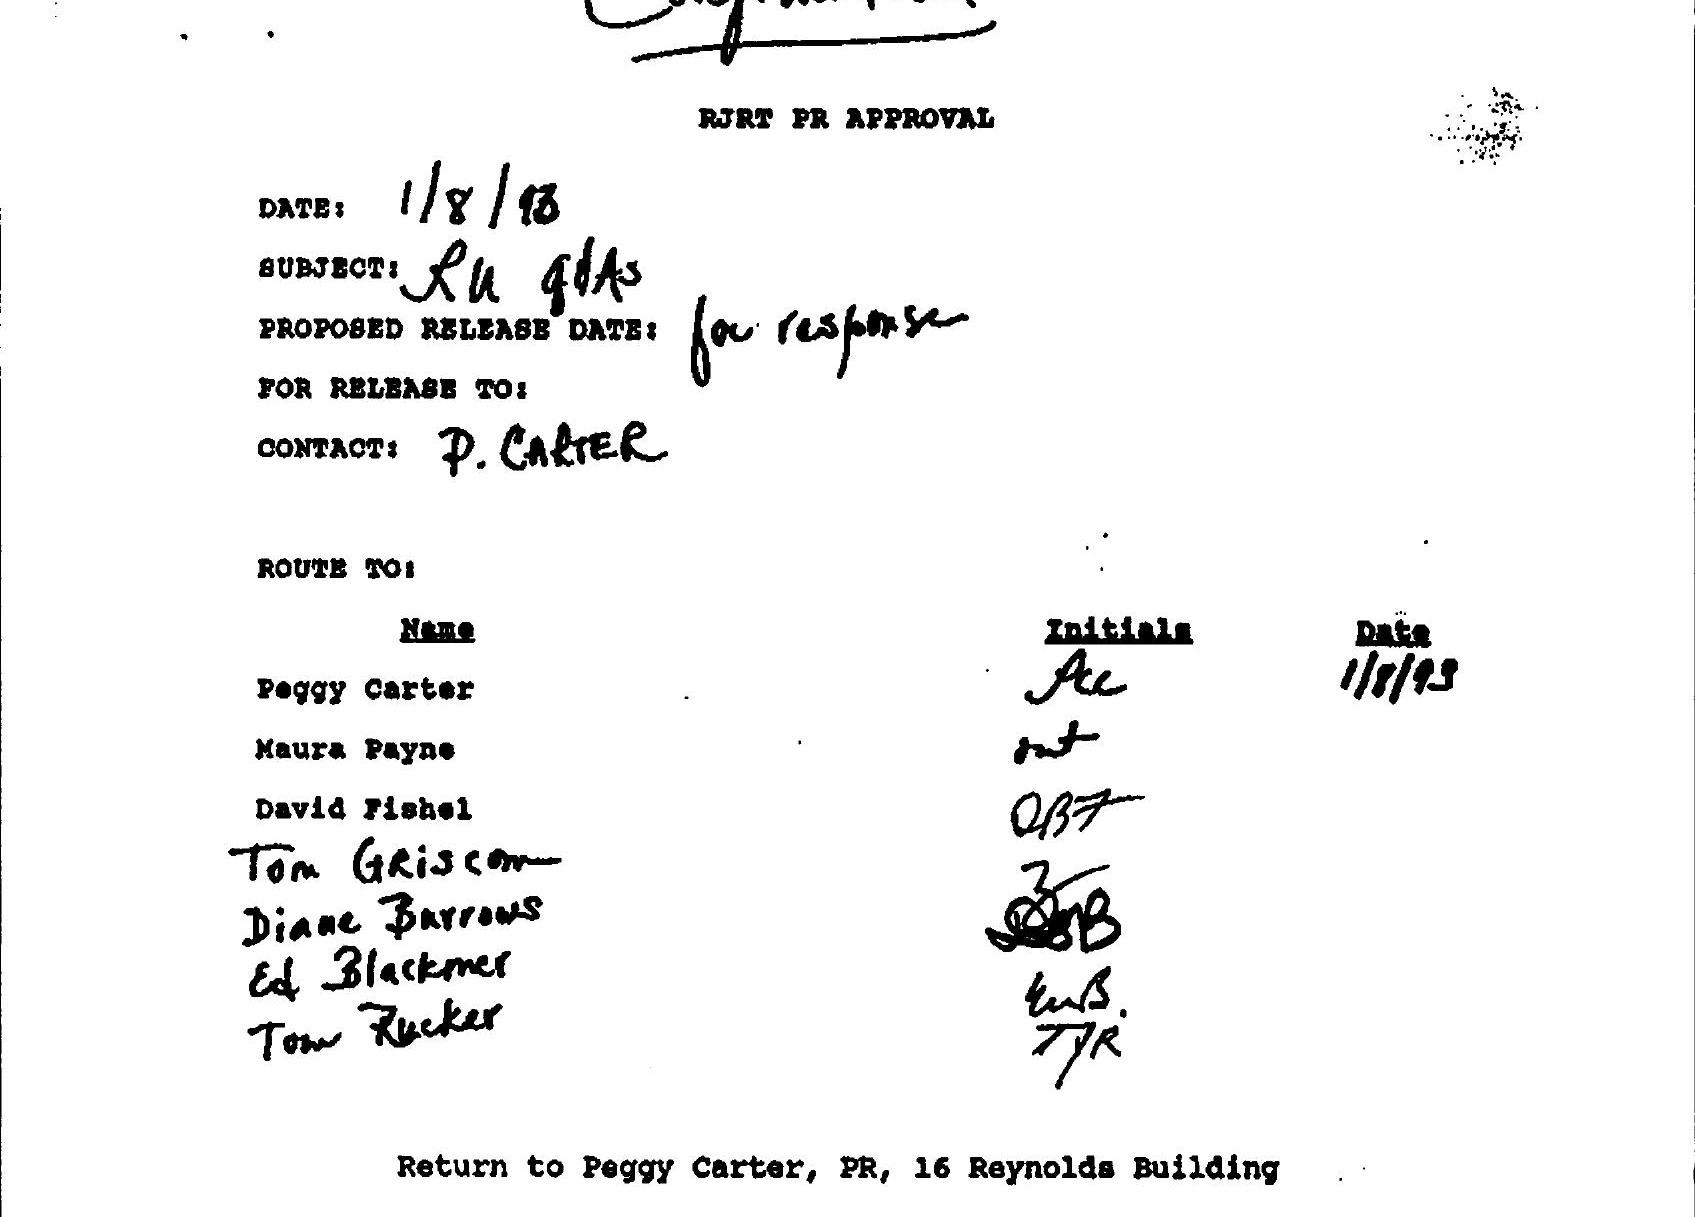 RJRT PR APPROVAL
DATE: 1/8/93
SUBJECT: Ru q&As
PROPOSED RELEASE DATE: for response
FOR RELEASE TO:
CONTACT: P. CARTER
ROUTE TO:
Name Initials Date
Peggy Carter 1/8/93
Maura Payne out
David Fishel DBF
Tom GRiscom
Diane Burrows
Ed Blackmer EWB.
Tom Rucker
Return to Peggy Carter, PR, 16 Reynolds Building